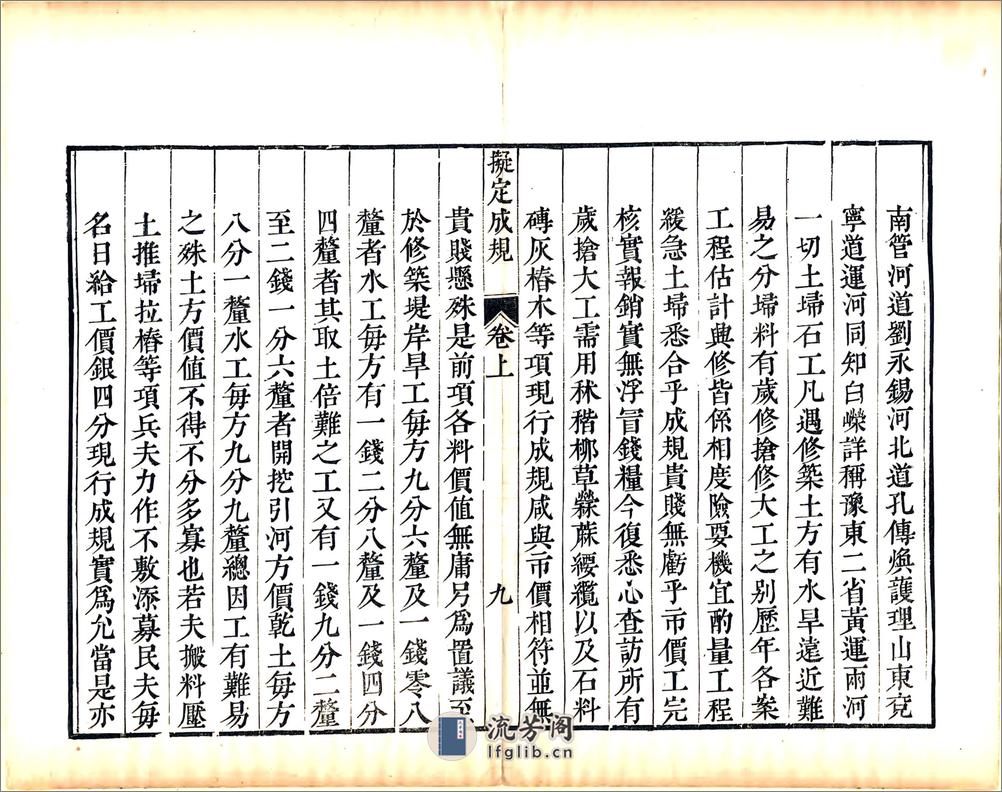 南管河道劉永錫河北道孔傳煥護理山東兗
寧道運河同知白嶸詳稱豫東二省黃運兩河
一切土埽石工凡遇修築土方有水旱遠近難
易之分埽料有歲修搶修大工之别歷年各案
工程估計興修皆係相度險要機宜酌量工程
緩急土埽悉合乎成規貴賤無虧乎市價工完
核實報銷實無浮冒錢糧今復悉心查訪所有
歲搶大工需用秫稭柳草檾蔴纓纜以及石料
磚灰樁木等項現行成規咸與市價相符並無
擬定成規
卷上
九
貴賤懸殊是前項各料價值無庸另為置議至
於修築堤岸旱工每方九分六釐及一錢零八
釐者水工每方有一錢二分八釐及一錢四分
四釐者其取土倍難之工又有一錢九分二釐
至二錢一分六釐者開挖引河方價乾土每方
八分一釐水工每方九分九釐總因工有難易
之殊土方價值不得不分多寡也若夫搬料壓
土推埽拉樁等項兵夫力作不敷添募民夫每
名日給工價銀四分現行成規實為允當是亦
流芳阁
lfglib.cn